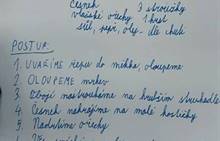 česnek 3 stroužky
vlašské ořechy 1 hrst
sůl, pepř, olej - dle chuti
POSTUP:
1. UVAŘÍME řepu do měkka, oloupeme
2. OLOUPEME mrkev
3. Obojí nastrouháme na hrubším struhadle
4. Česnek nakrájíme na malé kostičky
5. Nadrtíme ořechy